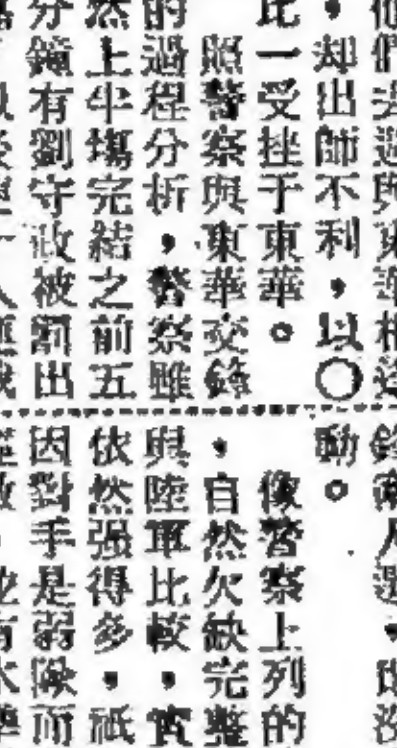 ，却出師不利，以〇
比一受挫于東華。
照警察與東華交鋒
的過程分析，警察雖
然上半塲完結之前五
分鐘有劉守政被罰出
動。
像警察上列的
，自然欠缺完整
與陸軍比較，實
依然强得多，祇
因對手是弱隊而